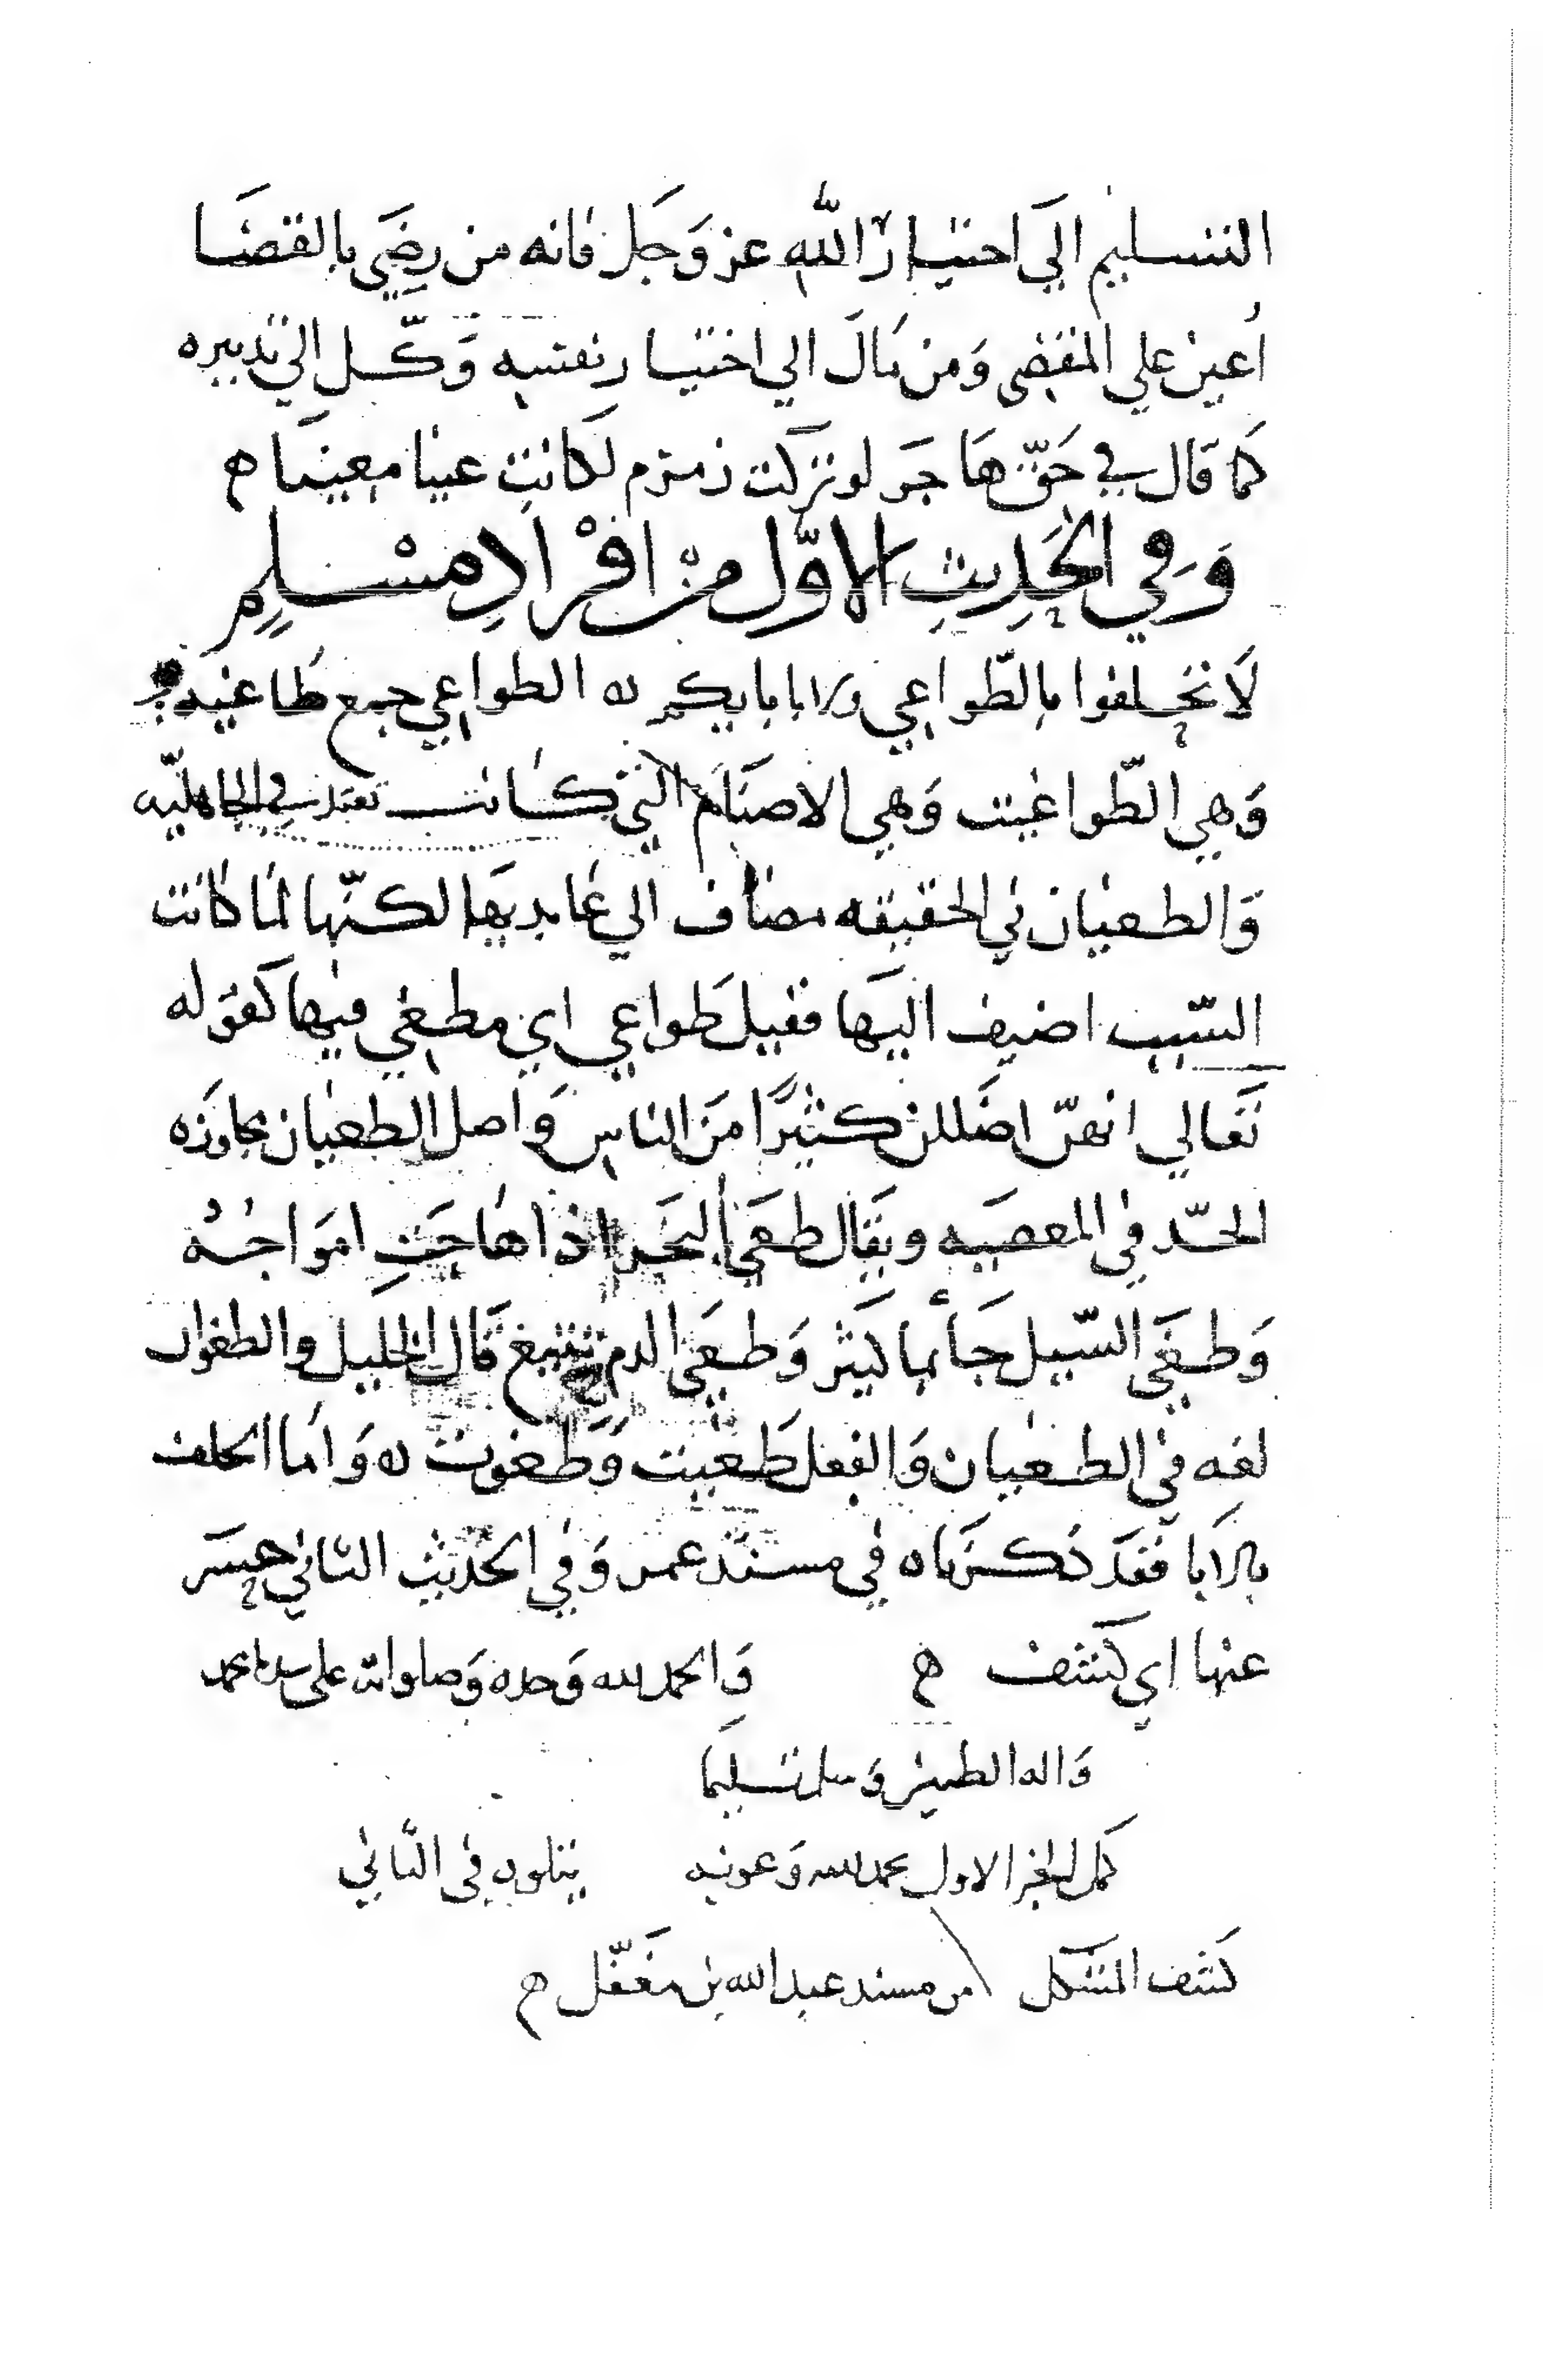 التسليم الي اختيار الله عز وَجَل فانه من رضَي بالقضَا
اُعين علي المقضى وَمن مَالَ الي اختيار نفسه وَكّل الي تدبيره
كَما قال في حَقّ هَاجَر لو تركت زمزم لكَانت عينا معينا ه
وَفي الحَدِيثِ الاوّل منْ افْرادِ مسْلِمٍ
لَا تحلفوا بالطّواغي ولا بابايكم ه الطواغي جمع طَاغيه
وَهي الطّواغيت وَهي الاصنَام التي كانت تعبد في الجاهليّه
وَالطغيان في الحقيقه مضاف الي عَابديهَا لكنّها لمَا كانت
السّبب اضيف اليهَا فقيل طَواغي اي مطغي فيها كَقوله
تَعَالي انهنّ اضَللن كثيرًا مَن الناس وَاصل الطغيان مجاوزه
الحَدّ في المعصيه ويقَال طغَي البحَر اذا هَاجَتِ امَواجُهُ
وَطغَي السّيل جَأ بما كَثير وَطغَي الدم تتبيغ قَال الخليل والطغوان
لغه في الطغيان وَالفعل طَغيت وَطغوت ه وَامَا الحلف
بالابَا فقَد ذكرنَاه في مسنَد عمر وَفي الحَديث الثاني حسَر
عنها اي كَشف ه وَالحمد لله وَحده وَصلواته على سيدنا محمد
وَاله الطيبين وَسلم تسليمَا
كَمل الجز الاول بحمد الله وَعونه يتلوه في الثَّاني
كَشف المشكَل من مسند عبد الله بن مغَفّل ه